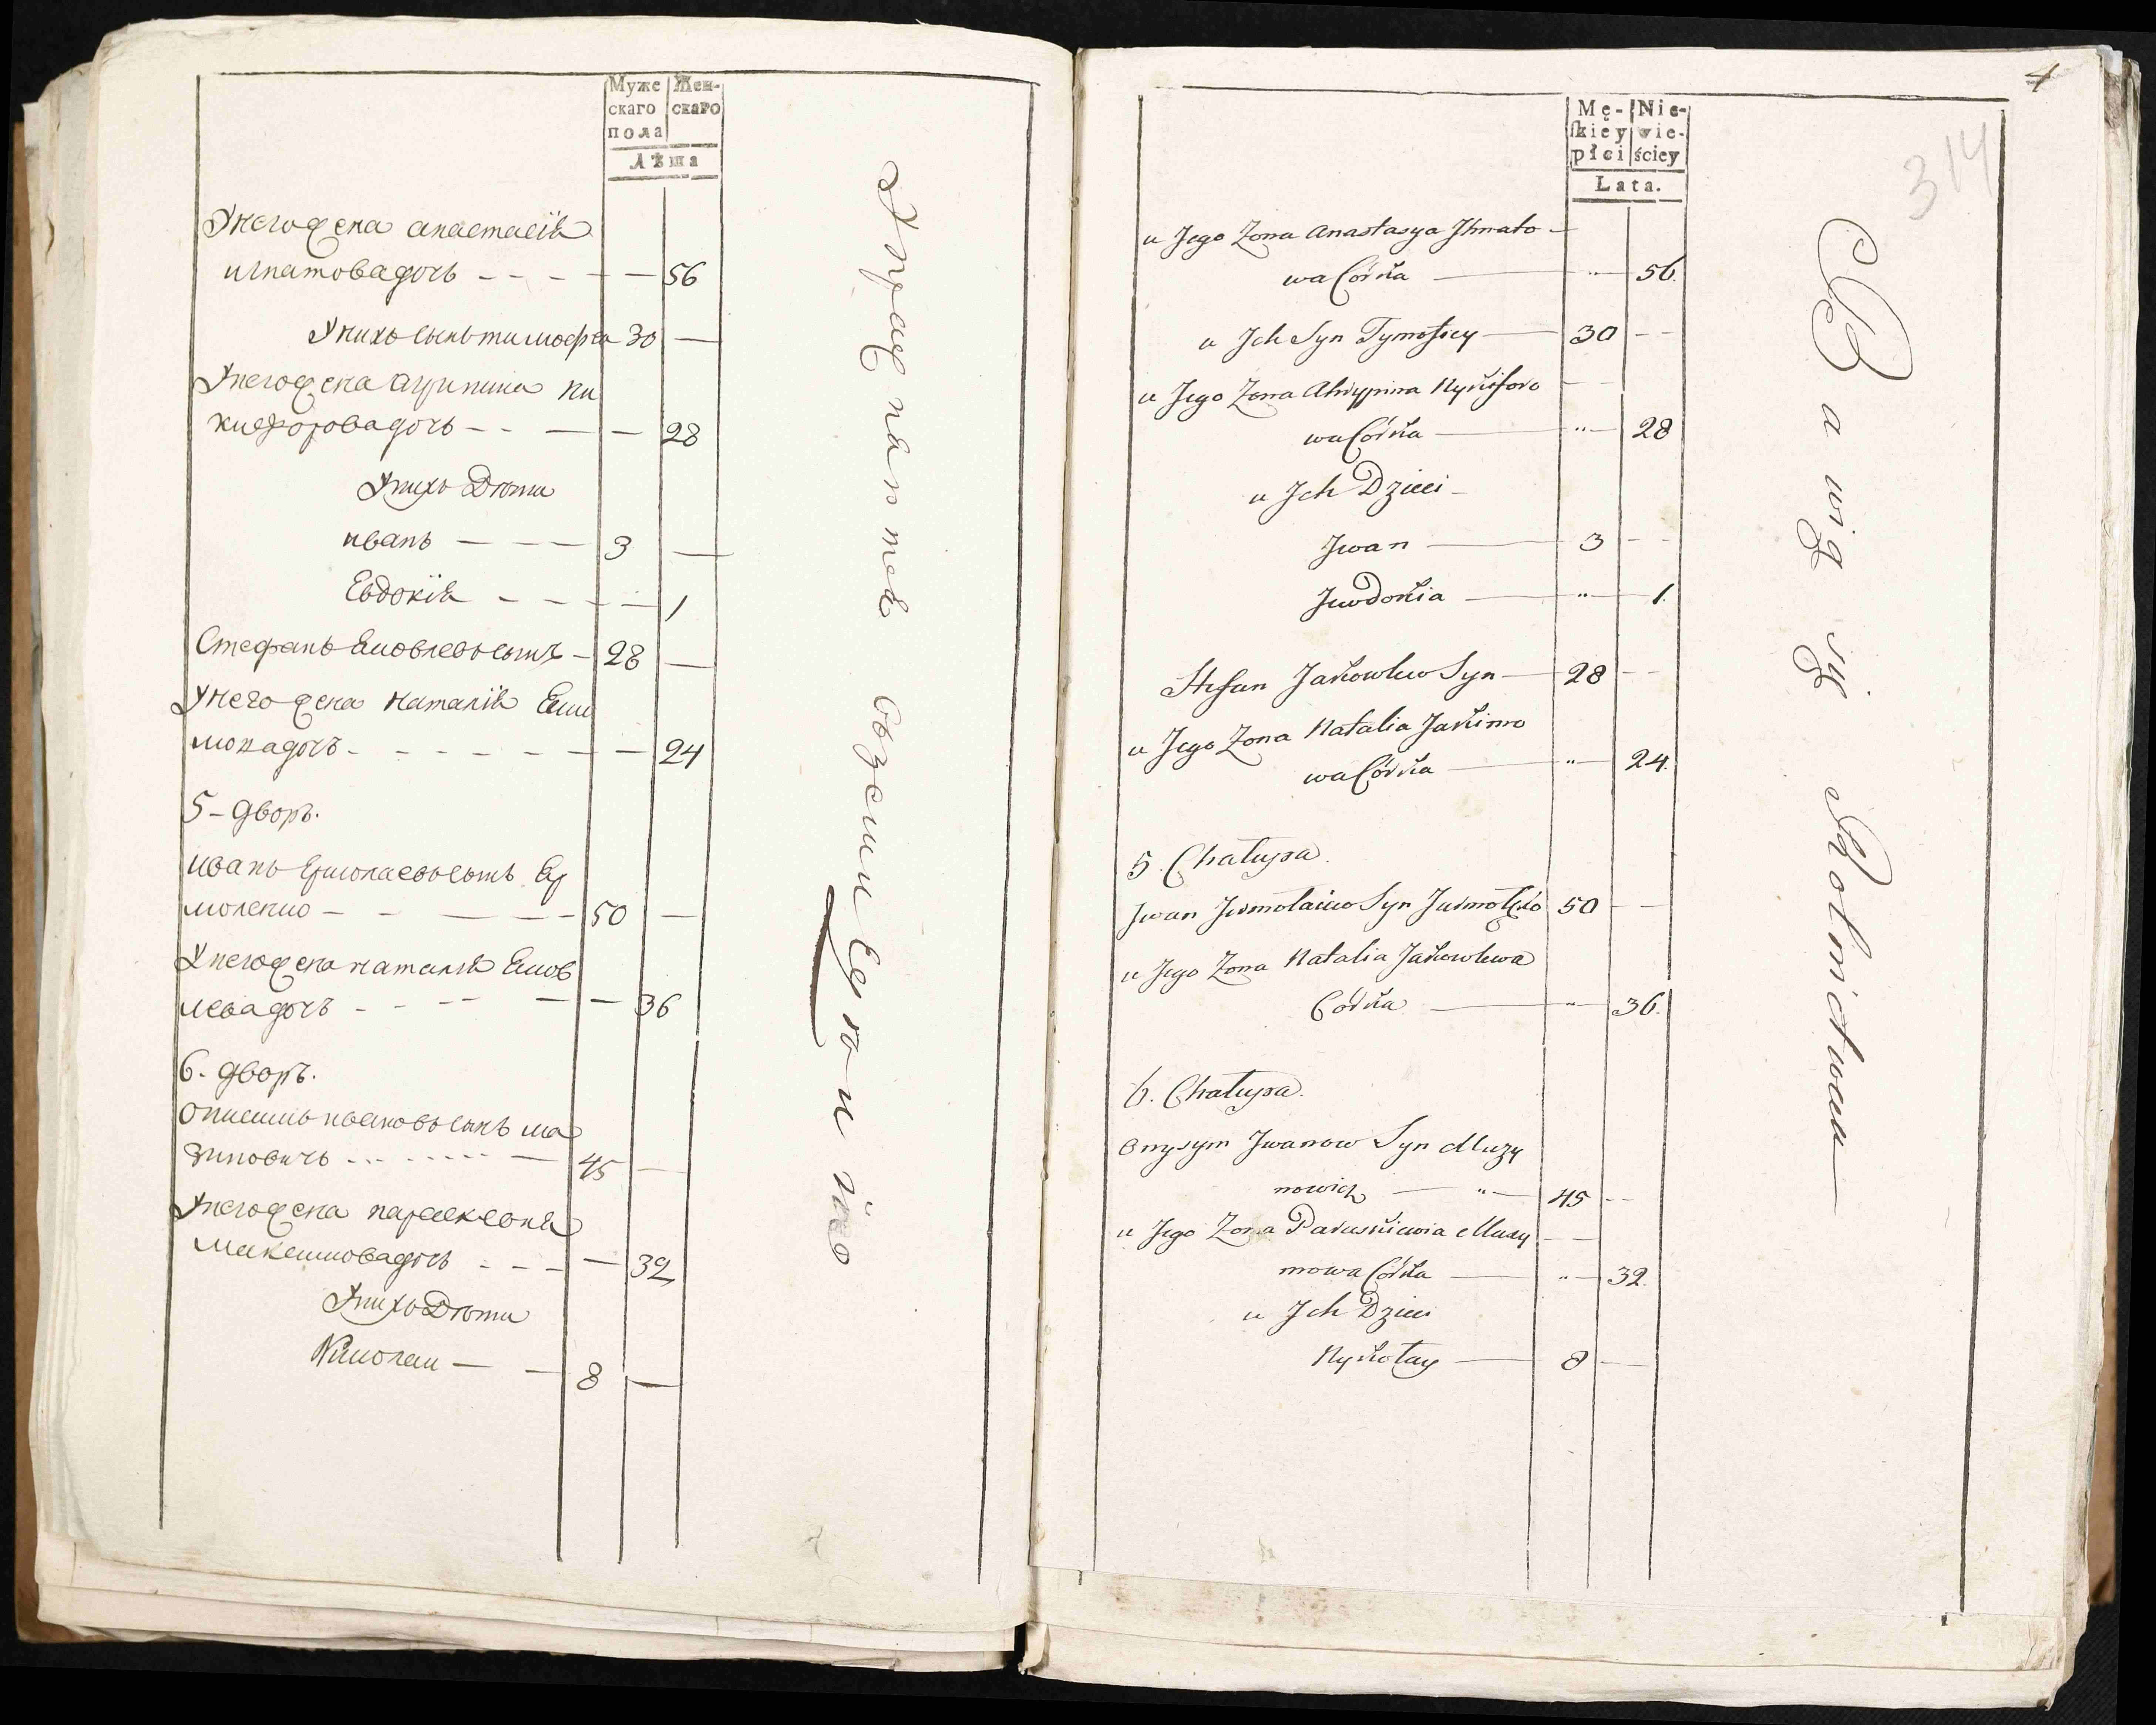 Муже
скаго
пола
Жен-
скаго
Лѣта
Унегожена анастасія
игнатовадочь - - - — — 56
Унихъ сынъ тимофеи 30 —
Унегожена агрипина ни
кифоровадочь - - — — 28
Унихъ Дѣти
иванъ — — — 3 —
Евдокія - - - — 1
Стефанъ яковлевъ сынъ - 28 —
Унего жена наталія яки
мовадочь - - - - - — 24
5 - дворъ.
иванъ Ермолаевъ сынъ Ер
моленко — - — — - 50 —
Унегожена наталія яков
левадочь - - -- — — 36
6. дворъ.
онисимъ ивановъ сынъ ма
зиновичъ ... ..... — 45 —
Унегожена параскевія
максимовадочь - - - — 32
Унихъ Дѣти
Николаи — — 8 —
Упражняются въземледѣліи
4
314
Mę-
skiey
płci
Nie-
wie-
ściey
Lata.
u Jego Zona Anastasya Jhnato -
wa Córka — " — 56.
u Jch Syn Tymofiey — 30 - -
u Jego Zona Ahrypina Nykiforo
wa Córka — " — 28
u Jch Dzieci -
Jwan — 3 - -
Jewdokia — " — 1.
Stefan Jakowlew Syn — 28 - -
u Jego Zona Natalia Jakimo
wa Córka — " — 24.
5. Chałupa.
Jwan Jermołaiew Syn Jermołęko 50 - -
u Jego Zona Natalia Jakowlewa
Córka — " — 36.
6. Chałupa.
Onysym Jwanow Syn Muzy
nowicz — " — 45 - -
u Jego Zona Paraskiewia Maxy - -
mowa Córka — " — 32.
u Jch Dzieci
Nykołay — 8 - -
Bawią się Rolnictwem —